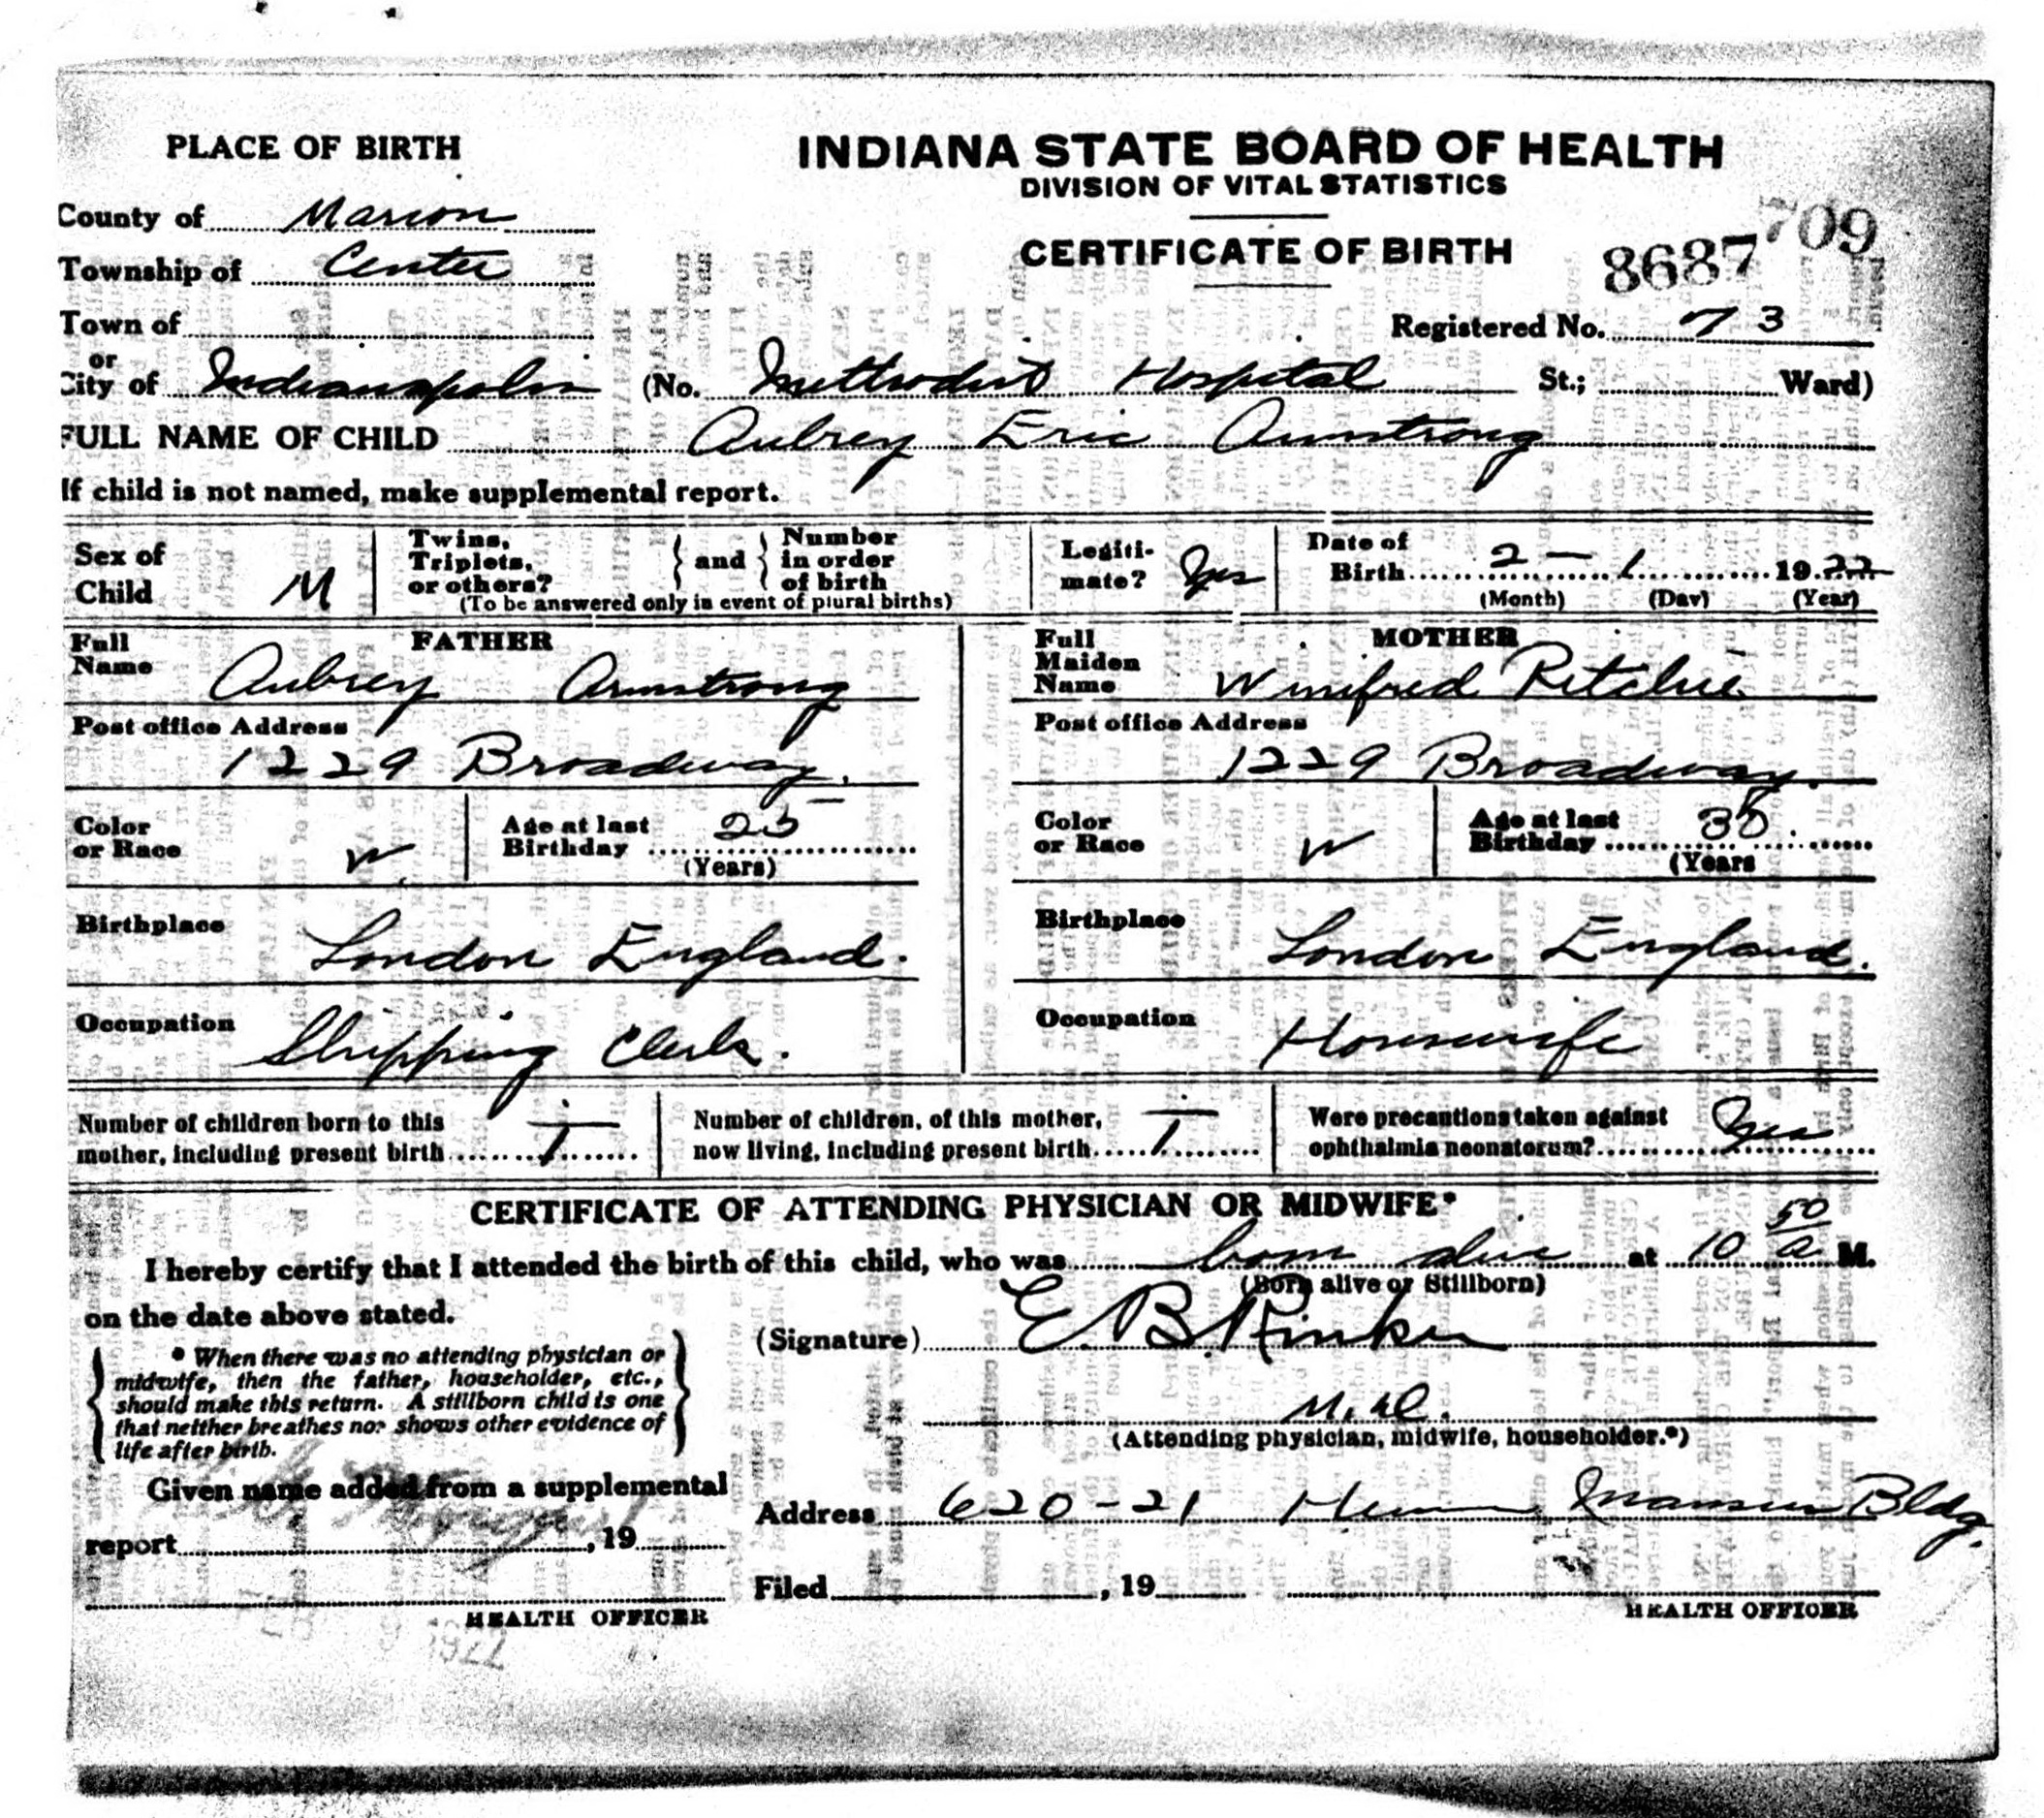 PLACE OF BIRTH
INDIANA STATE BOARD OF HEALTH
DIVISION OF VITAL STATISTICS
County of Marion
Township of Center
CERTIFICATE OF BIRTH
8687 709
Town of
Registered No. 73
or
City of Indianapolis (No. Methodist Hospital St.; Ward)
FULL NAME OF CHILD Aubrey Eric Armstrong
If child is not named, make supplemental report.
Sex of Child M
Twins, Triplets, or others? and Number in order of birth
(To be answered only in event of plural births)
Legitimate? Yes
Date of Birth 2 - 1 1922
(Month) (Day) (Year)
FATHER
Full Name Aubrey Armstrong
Post office Address
1229 Broadway.
Color or Race W.
Age at last Birthday 25
(Years)
Birthplace London England.
Occupation Shipping Clerk.
MOTHER
Full Maiden Name Winifred Ritchie
Post office Address
1229 Broadway.
Color or Race W
Age at last Birthday
(Years
Birthplace London England.
Occupation Housewife
Number of children born to this mother, including present birth 1
Number of children, of this mother, now living, including present birth 1
Were precautions taken against ophthalmia neonatorum? Yes
CERTIFICATE OF ATTENDING PHYSICIAN OR MIDWIFE*
I hereby certify that I attended the birth of this child, who was born alive at 10 50 a M.
(Born alive or Stillborn)
on the date above stated.
(Signature) E. B. Rinker
* When there was no attending physician or
midwife, then the father, householder, etc.,
should make this return. A stillborn child is one
that neither breathes nor shows other evidence of
life after birth.
M.D.
(Attending physician, midwife, householder.*)
Given name added from a supplemental
report , 19
Address 620-21 Hume Mansur Bldg.
Filed , 19
HEALTH OFFICER
HEALTH OFFICER
1922